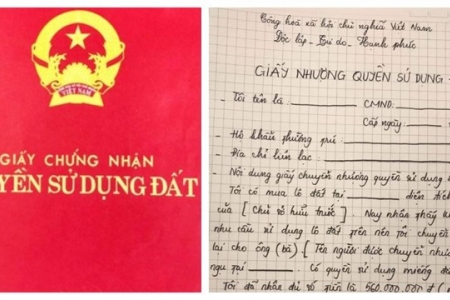 VIỆT NAM
GIẤY CHỨNG NHẬN
YỀN SỬ DỤNG ĐẤT
Cộng hoà xã hội chủ nghĩa Việt Nam
Độc lập - Tự do - Hạnh phúc
GIẤY NHƯỢNG QUYỀN SỬ DỤNG
- Tôi tên là: CMND:
Cấp ngày:
- Hộ khẩu thường trú:
- Địa chỉ liên lạc:
- Nội dung giấy chuyển nhượng quyền sử dụng
Tôi có mua lô đất tại diện tích
của [Chủ sở hữu trước]. Nay nhận thấy
nhu cầu sử dụng lô đất trên nên tôi chuyển
lại cho ông (bà) [Tên người được chuyển
ngụ tại Có quyền sử dụng miếng đất
Tôi đã nhận đủ số tiền là 560.000.000 đ (